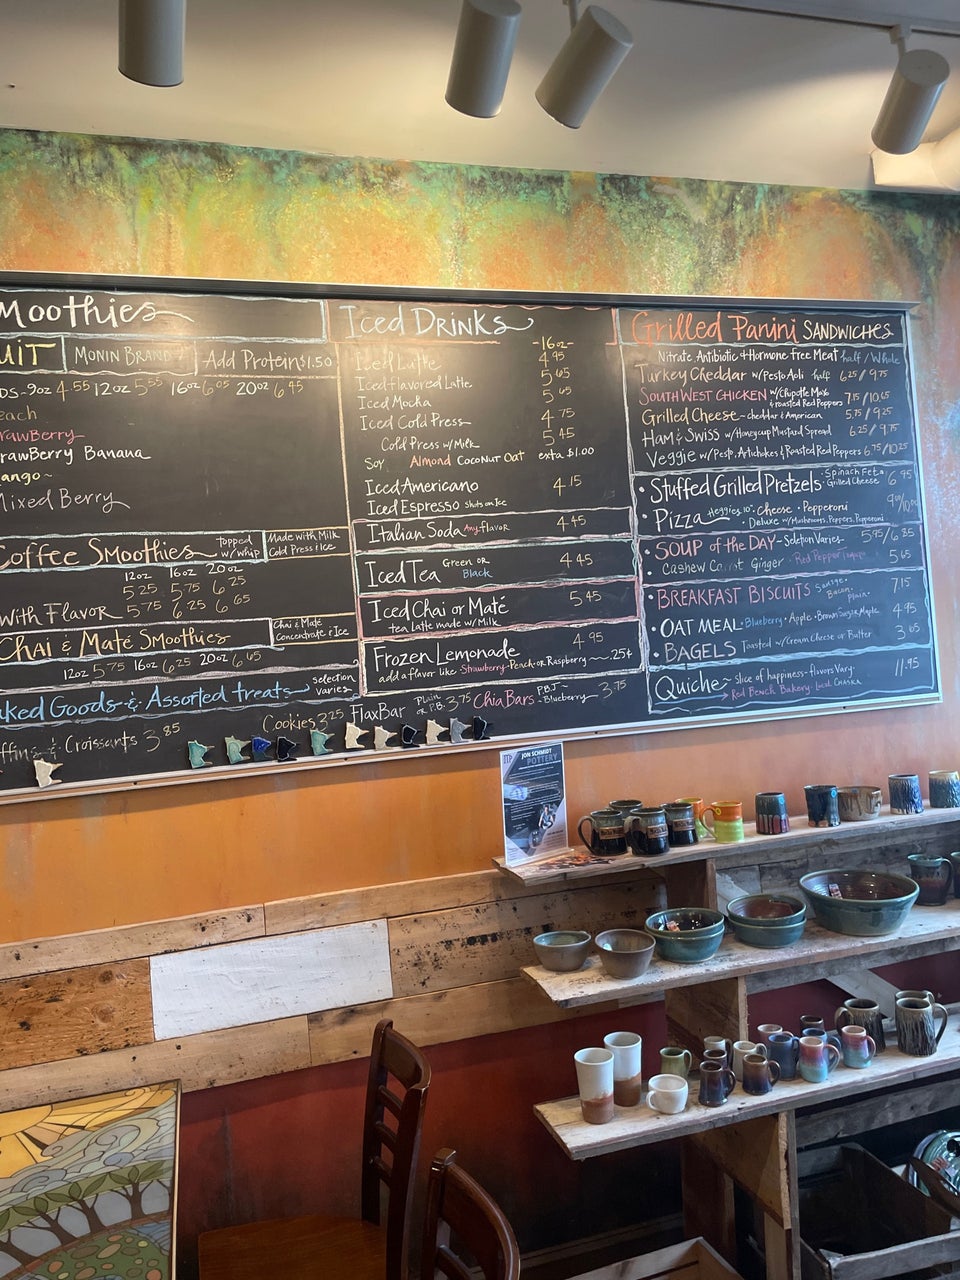 moothies
UIT
MONIN BRAND
Add Protein $1.50
DS-9oz 4.55 12oz 5.55 16oz 6.05 20oz 6.45
each
rawBerry
rawBerry Banana
ango~
Mixed Berry
Coffee Smoothies
Topped w/whip
Made with Milk
Cold Press & Ice
12oz 16oz 20oz
5.25 5.75 6.25
With Flavor 5.75 6.25 6.65
Chai & Maté Smoothies
Chai & Maté
Concentrate & Ice
12oz 5.75 16oz 6.25 20oz 6.45
aked Goods & Assorted treats
selection varies
ffins & Croissants 3.85
Cookies 3.25
FlaxBar Plain or P.B. 3.75
Chia Bars P.B.J~ Blueberry~ 3.75
Iced Drinks
-16oz-
Iced Latte 4.95
Iced Flavored Latte 5.65
Iced Mocha 5.65
Iced Cold Press 4.75
Cold Press w/ Milk 5.45
Soy Almond Coconut Oat exta $1.00
Iced Americano 4.15
Iced Espresso Shots on Ice
Italian Soda Any flavor 4.45
Iced Tea Green or Black 4.45
Iced Chai or Maté 5.45
tea latte made w/ Milk
Frozen Lemonade 4.95
add a flavor like Strawberry-Peach-or Raspberry~ .25+
Grilled Panini Sandwiches
Nitrate Antibiotic & Hormone free Meat half / Whole
Turkey Cheddar w/ Pesto Aoli half 6.25 / 9.75
South West Chicken w/ Chipotle Mayo & roasted Red Peppers 7.15 / 10.65
Grilled Cheese~ cheddar & American 5.75 / 9.25
Ham & Swiss w/ Honeycup Mustard Spread 6.25 / 9.75
Veggie w/ Pesto, Artichokes & Roasted Red Peppers 6.75 / 10.25
• Stuffed Grilled Pretzels · Spinach Feta · Grilled Cheese 6.95
• Pizza Heggies 10". Cheese · Pepperoni
• Deluxe w/ Mushrooms, Peppers, Pepperoni
• Soup of the Day - Seletion Varies- 5.95/6.85
• Cashew Carrot Ginger · Red Pepper 5.65
• Breakfast Biscuits Sausage · Bacon · plain · 7.15
• Oat Meal · Blueberry · Apple · Brown Sugar Maple 4.95
• Bagels Toasted w/ Cream Cheese or Butter 3.65
Quiche~ Slice of happiness - flavors Vary- 11.95
Red Bench Bakery · Local Chaska
JON SCHMIDT
POTTERY